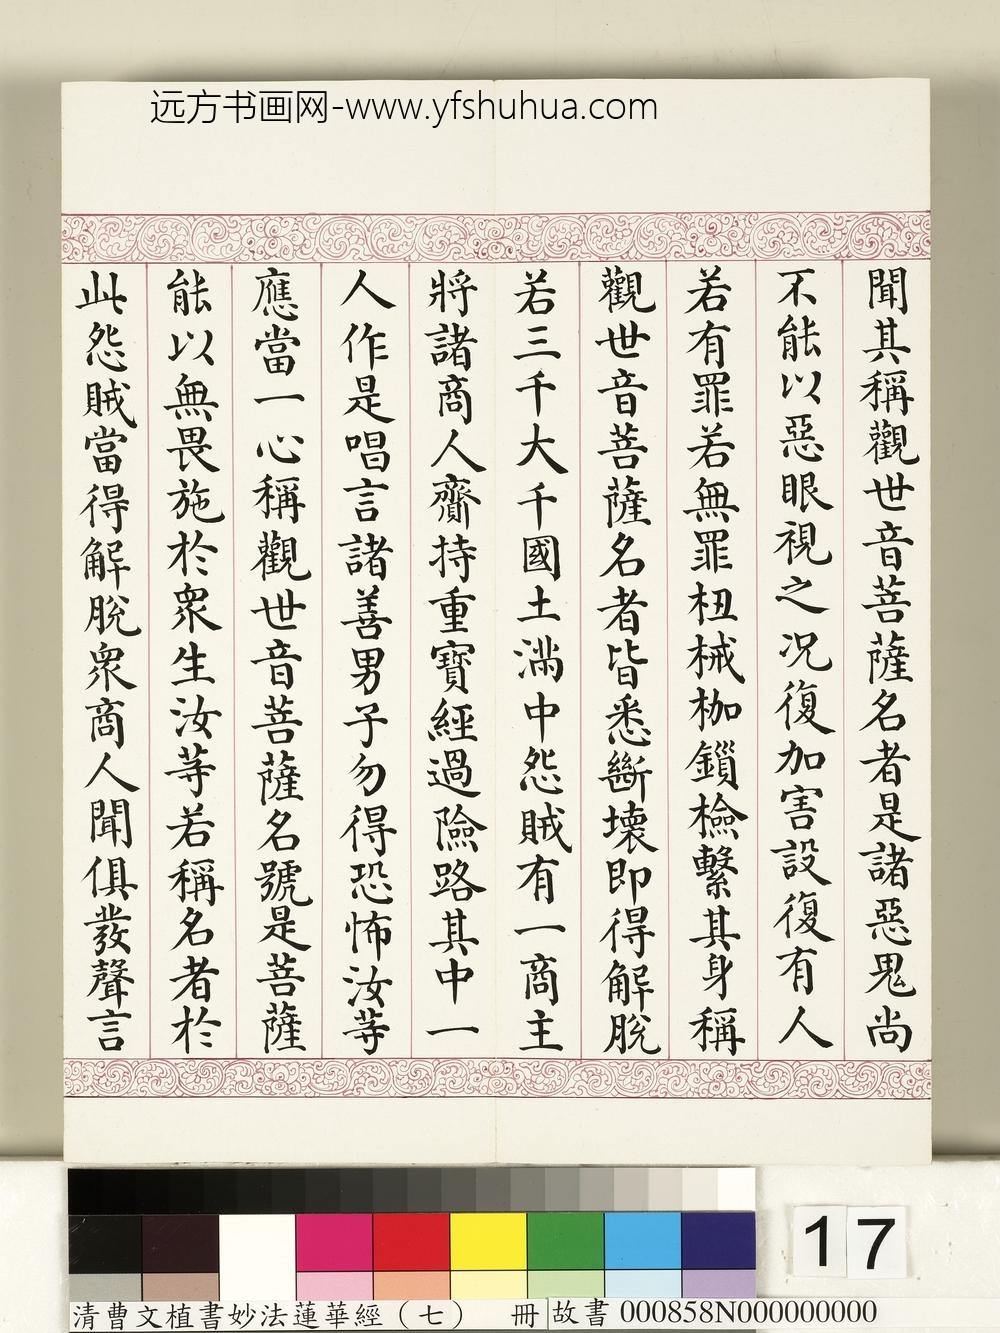 远方书画网-www.yfshuhua.com
聞其稱觀世音菩薩名者是諸惡鬼尚
不能以惡眼視之况復加害設復有人
若有罪若無罪杻械枷鎖檢繫其身稱
觀世音菩薩名者皆悉斷壞即得解脫
若三千大千國土滿中怨賊有一商主
將諸商人齎持重寶經過險路其中一
人作是唱言諸善男子勿得恐怖汝等
應當一心稱觀世音菩薩名號是菩薩
能以無畏施於衆生汝等若稱名者於
此怨賊當得解脫衆商人聞俱發聲言
17
清曹文植書妙法蓮華經（七） 冊 故書 000858N000000000